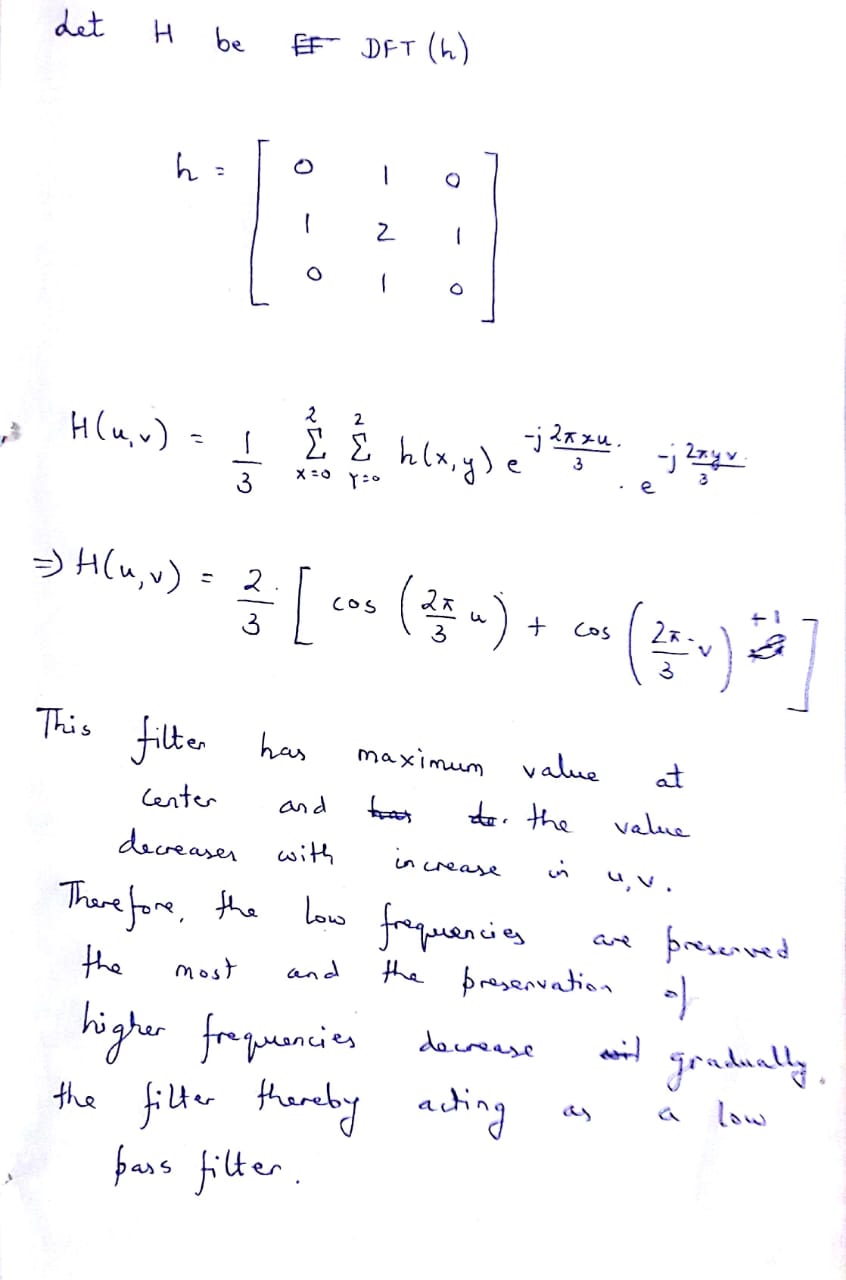 Let H be DFT (h)
h = [ 0 1 0
1 2 1
0 1 0 ]
H(u,v) = 1/3 Σ_{x=0}^{2} Σ_{y=0}^{2} h(x,y) e^{-j 2πxu/3} . e^{-j 2πyv/3}
⇒ H(u,v) = 2/3 [ cos (2π/3 u) + cos (2π/3 v) +1 ]
This filter has maximum value at
center and the value
decreases with increase in u,v.
Therefore, the low frequencies are preserved
the most and the preservation of
higher frequencies decrease gradually.
the filter thereby acting as a low
pass filter.